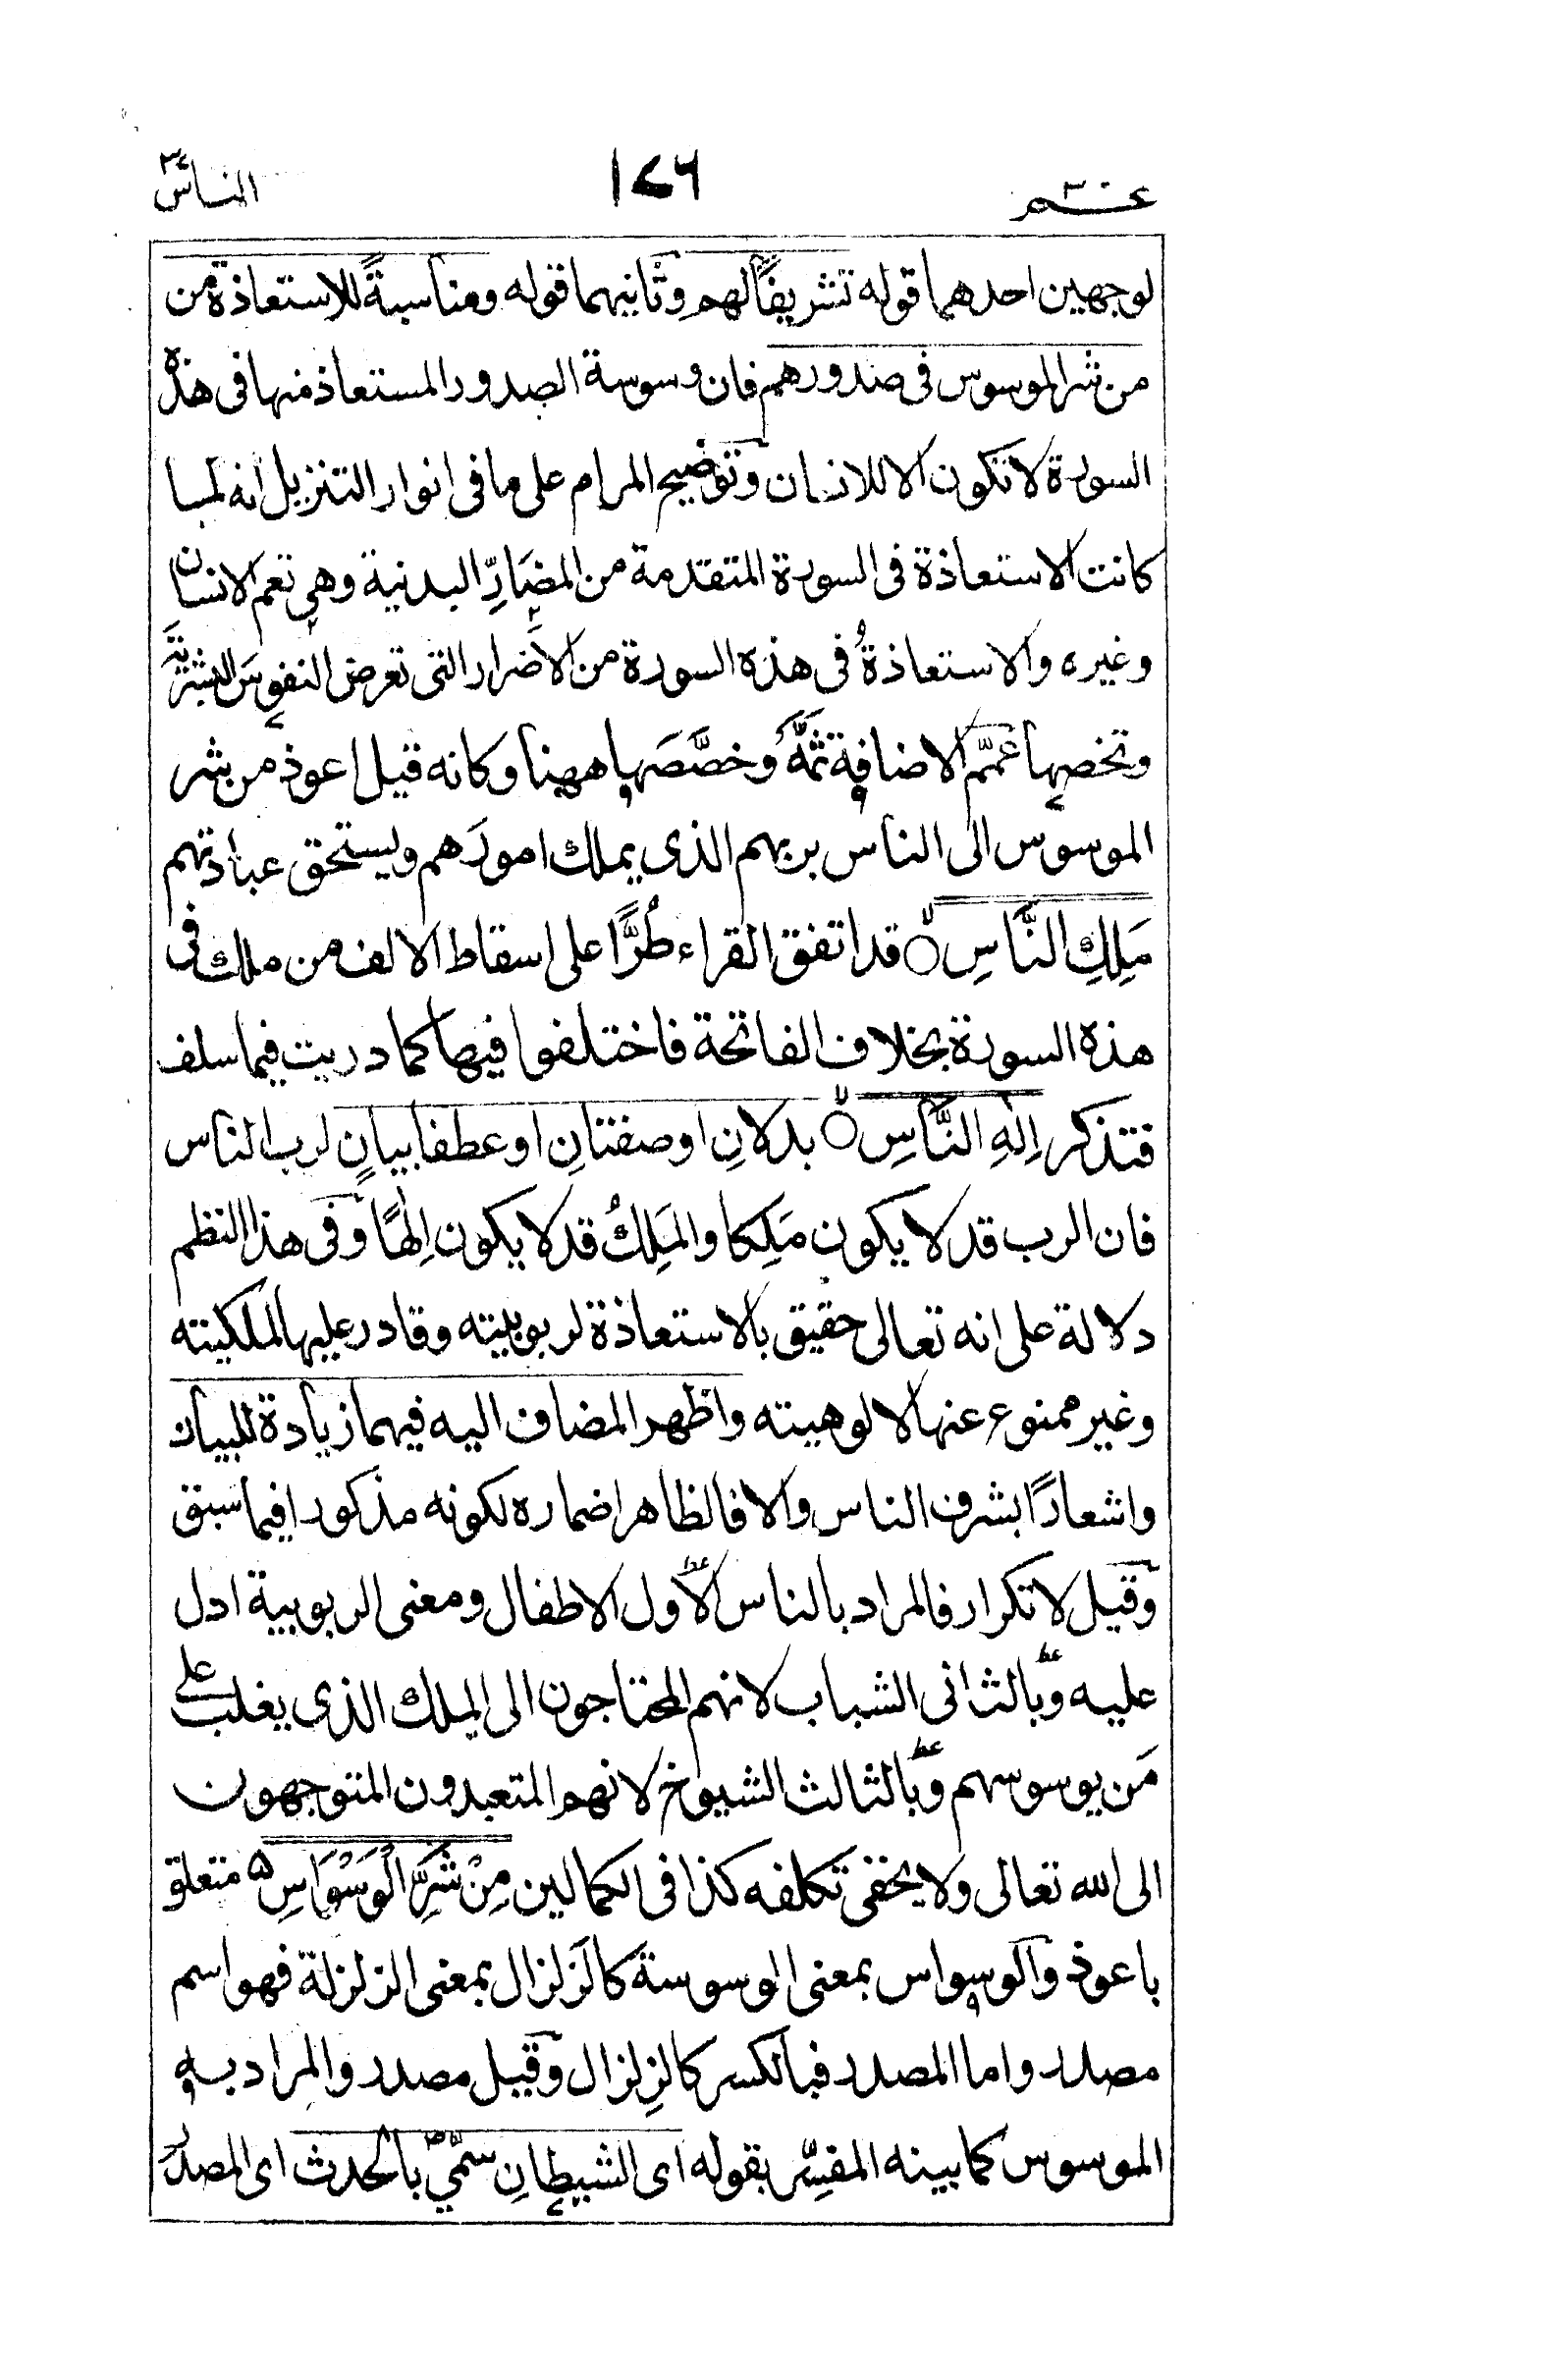 عــم ٣٠
١٧٦
الناس
لوجهين احدهما قوله تشريفًا لهم وثانيهما قوله ومناسبةً للاستعاذة من
من شر الموسوس في صدورهم فان وسوسة الصدور المستعاذ منها فى هذه
السورة لا تكون الا للانسان وتوضيح المرام على ما فى انوار التنزيل انه لما
كانت الاستعاذة فى السورة المتقدمة من المضَارِّ البدنية وهى تعم الانسان
وغيره والاستعاذةُ فى هذه السورة من الاَضرار التى تعرض النفوسَ البشريَّةَ
وتخصها عَمَّم الاضافة ثمَّهْ وخصَّصَها ههنا وكانه قيل اعوذ من شر
الموسوس الى الناس بربهم الذى يملك امورَهم ويستحق عبادتهم
مَلِكِ النَّاسِ ۙ قد اتفق القراء طُرًّا على اسقاط الالف من ملك فى
هذه السورة بخلاف الفاتحة فاختلفوا فيها كما دريت فيما سلف
فتذكر اِلٰهِ النَّاسِ ۙ بدلانِ او صفتانِ او عطفا بيانٍ لرب الناس
فان الرب قد لا يكون مَلِكا والمَلِكُ قد لا يكون اِلٰهًا وفى هذا النظم
دلالة على انه تعالى حقيق بالاستعاذة لربوبيته وقادر عليها لملكيته
وغير ممنوع عنها لالوهيته واظهر المضاف اليه فيهما زيادة للبيان
واشعارًا بشرف الناس والا فالظاهر اضماره لكونه مذكورا فيما سبق
وقيل لا تكرار فالمراد بالناس الاَول الاطفال ومعنى الربوبية ادل
عليه وبالثانى الشباب لانهم المحتاجون الى الملك الذى يغلب على
مَن يوسوسهم وبالثالث الشيوخ لانهم المتعبدون المتوجهون
الى الله تعالى ولا يخفى تكلفه كذا فى الكمالين مِنْ شَرِّ الْوَسْوَاسِ ۵ متعلق
باعوذ والوسواس بمعنى الوسوسة كالزَلزال بمعنى الزلزلة فهو اسم
مصدر واما المصدر فبالكسر كالزِلزال وقيل مصدر والمراد به
الموسوس كما بينه المفسِّر بقوله اى الشيطانِ سمّي بالحدث اى المصدَر